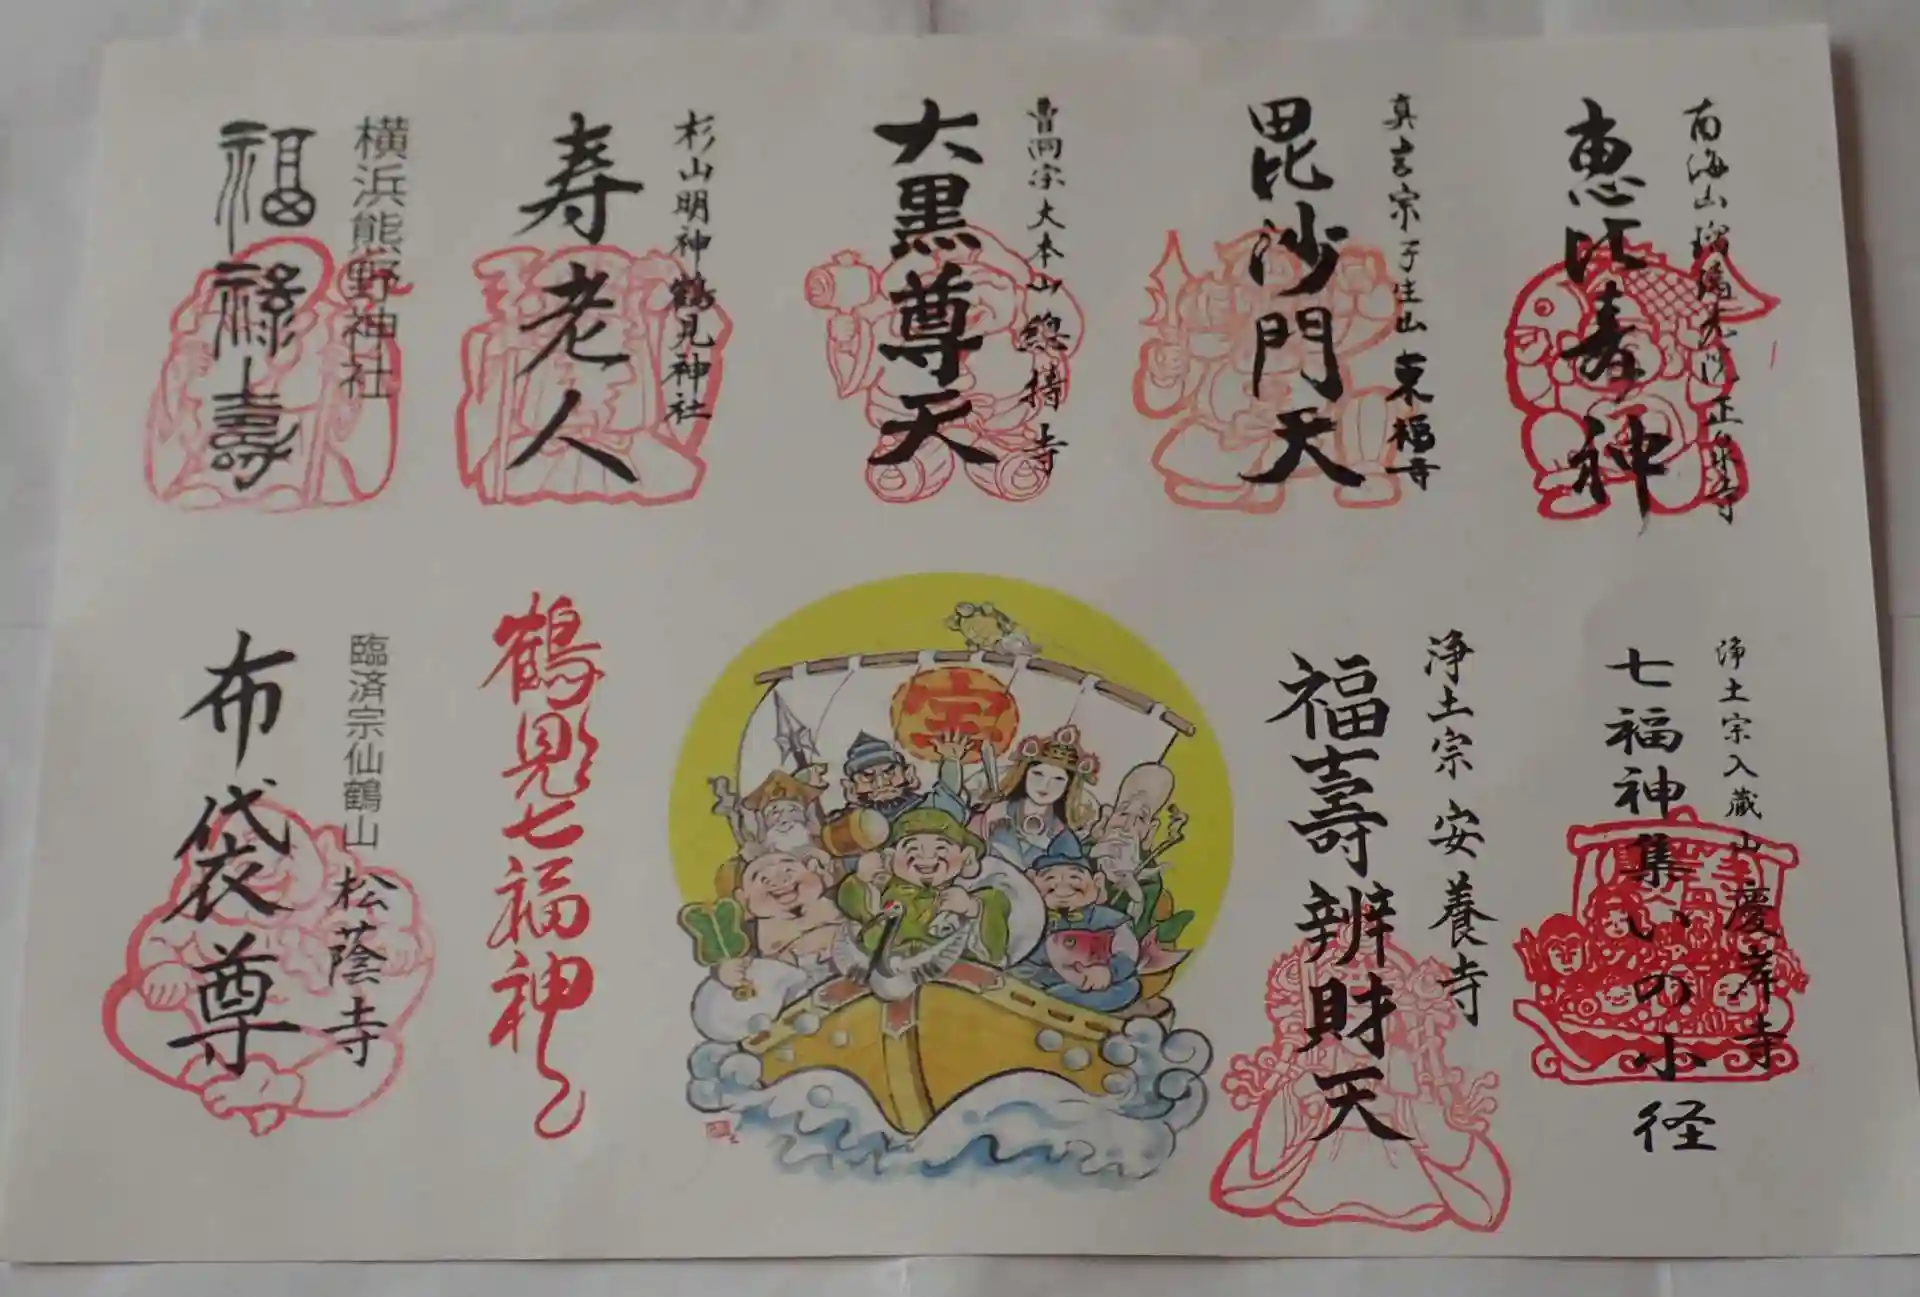 南海山瑠璃光院正泉寺
恵比寿神
真言宗子生山東福寺
毘沙門天
曹洞宗大本山總持寺
大黒尊天
杉山明神鶴見神社
寿老人
横浜熊野神社
福禄壽
浄土宗入蔵山慶岸寺
七福神集いの小径
浄土宗 安養寺
福壽辨財天
宝
鶴見七福神
臨済宗仙鶴山 松蔭寺
布袋尊